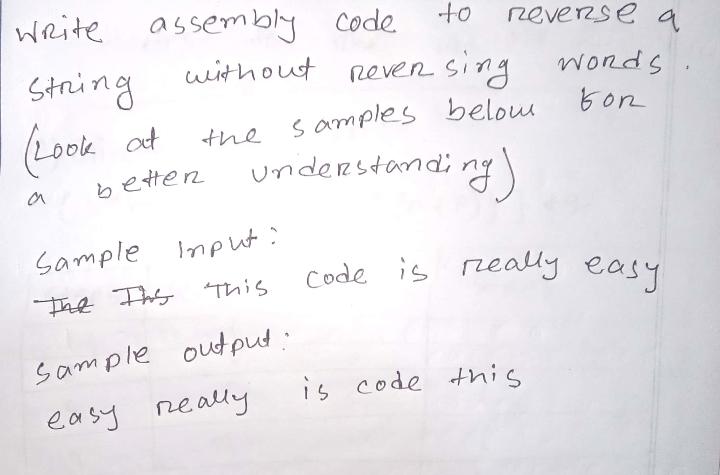 Write assembly code to reverse a
string without reversing words.
(Look at the samples below for
a better understanding)
Sample Input:
The Ths This code is really easy
Sample output:
easy really is code this